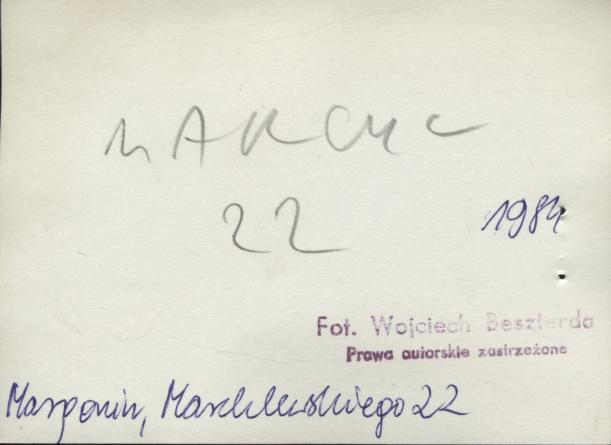 22
1984
Fot. Wojciech Beszterda
Prawa autorskie zastrzeżone
Margonin, Marchlewskiego 22